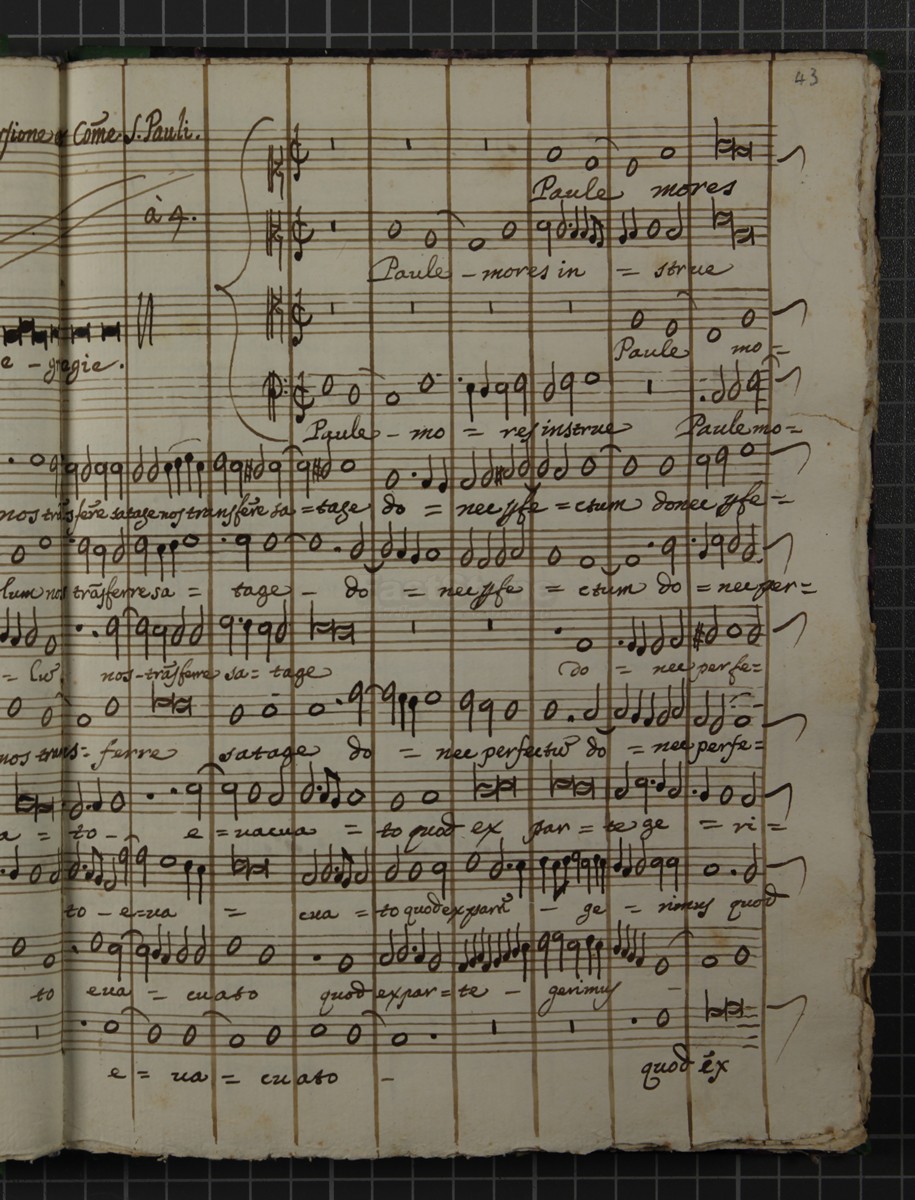 43
Cōme S. Pauli.
à 4.
Paule mores
Paule - mores in = strue
Paule mo =
e - gregie.
Paule - mo = res instrue Paule mo =
nos trāsferre satage nos transferre sa = tage do = nec pfe = ctum donec pfe =
lum nos trāsferre sa = tage - do = nec pfe = ctum do = nec per =
= lū nos - trāsferre sa = tage do = nec perfe =
nos trans = ferre satage do = nec perfectū do = nec perfe =
a = to - e = uacua = to quod ex par = te ge = ri =
to - e = ua = cua = to quod ex part - ge = rimus quod
to eua = cuato quod ex par = te - gerimus -
e = ua = cuato - quod ex